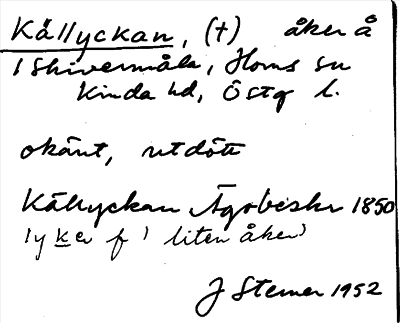 Källyckan, (†) åker å
1 Skivermåla, Horns sn
Kinda hd, Östg l.
okänt, utdött
Källyckan Ägobeskr 1850
lycka f 'liten åker'
J Sterner 1952